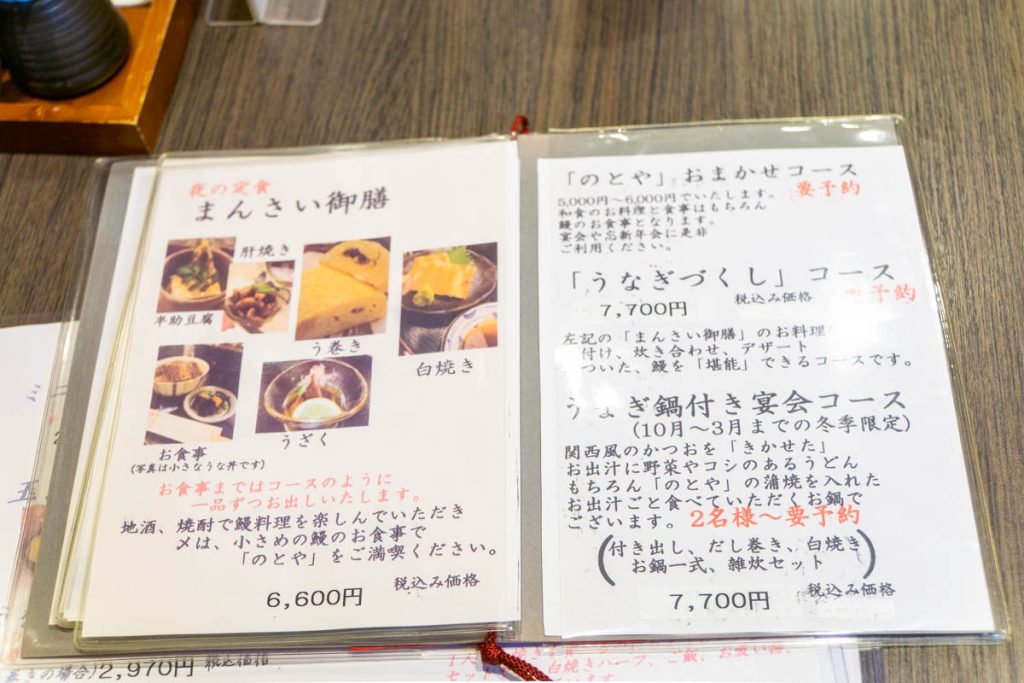 夜の定食
まんさい御膳
肝焼き
半助豆腐
う巻き
白焼き
お食事
(写真は小さなうな丼です)
うざく
お食事まではコースのように
一品ずつお出しいたします。
地酒、焼酎で鰻料理を楽しんでいただき
〆は、小さめの鰻のお食事で
「のとや」をご満喫ください。
税込み価格
6,600円
「のとや」おまかせコース
5,000円～6,000円でいたします。 要予約
和食のお料理と食事はもちろん
鰻のお食事となります。
宴会や忘新年会に是非
ご利用ください。
「うなぎづくし」コース
7,700円 税込み価格 要予約
左記の「まんさい御膳」のお料理に
付け、炊き合わせ、デザート
ついた、鰻を「堪能」できるコースです。
うなぎ鍋付き宴会コース
(10月～3月までの冬季限定)
関西風のかつおを「きかせた」
お出汁に野菜やコシのあるうどん
もちろん「のとや」の蒲焼を入れた
お出汁ごと食べていただくお鍋で
ございます。2名様～要予約
(付き出し、だし巻き、白焼き
お鍋一式、雑炊セット)
7,700円 税込み価格
の場合)2,970円 税込価格
白焼きハーフ、ご飯、お吸い物、
セット